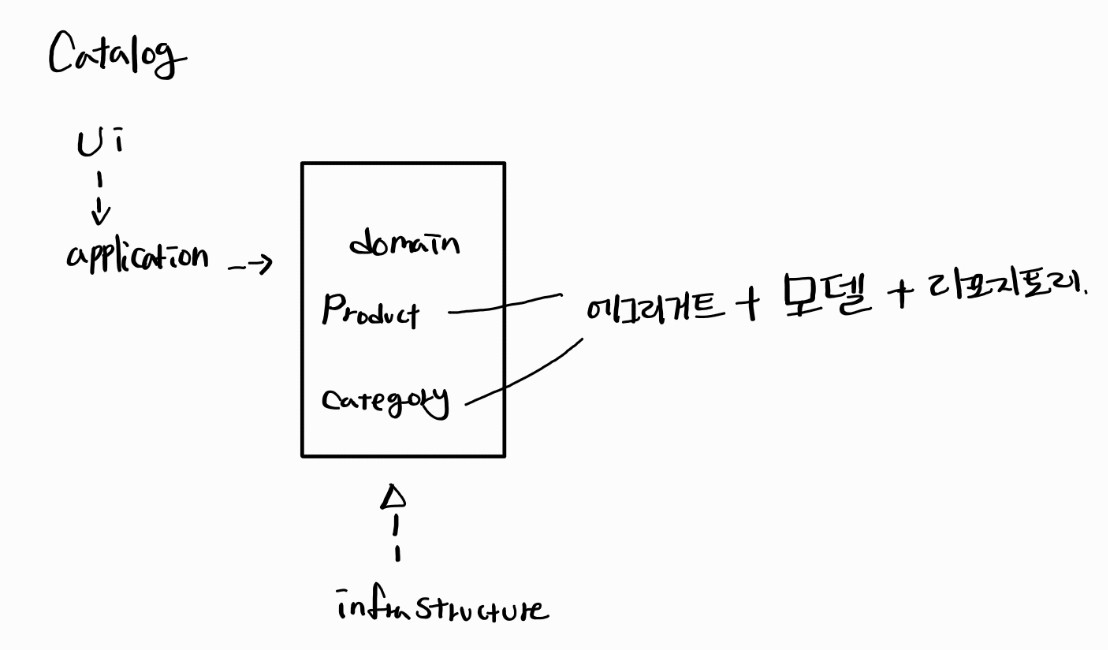 Catalog
Ui
application
domain
Product
category
에그리거트 + 모델 + 리포지토리.
infrastructure